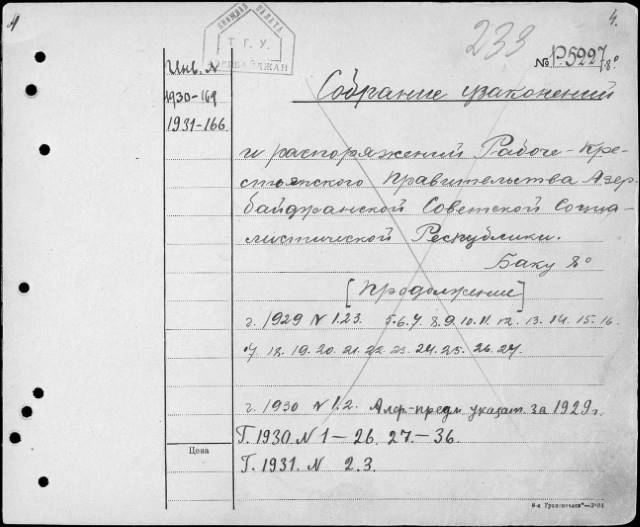 4
КНИЖНАЯ ПАЛАТА
Т. Г. У.
АЗЕРБАЙДЖАН
233
4.
№ Р.5227/8°
Инв. №
1930-169
1931-166
Собрание узаконений
и распоряжений Рабоче-Кре-
стьянского Правительства Азер-
байджанской Советской Социа-
листической Республики.
Баку 8°
[Продолжение]
г. 1929 N 1.23. 5.6.7. 8.9 10.11. 12. 13. 14. 15. 16.
17 18. 19. 20. 21. 22. 23. 24. 25. 26. 27.
г. 1930 N 1.2. Алф-предм указат. за 1929 г.
Г. 1930. N 1 — 26. 27. — 36.
Цена
Г. 1931. N 2. 3.